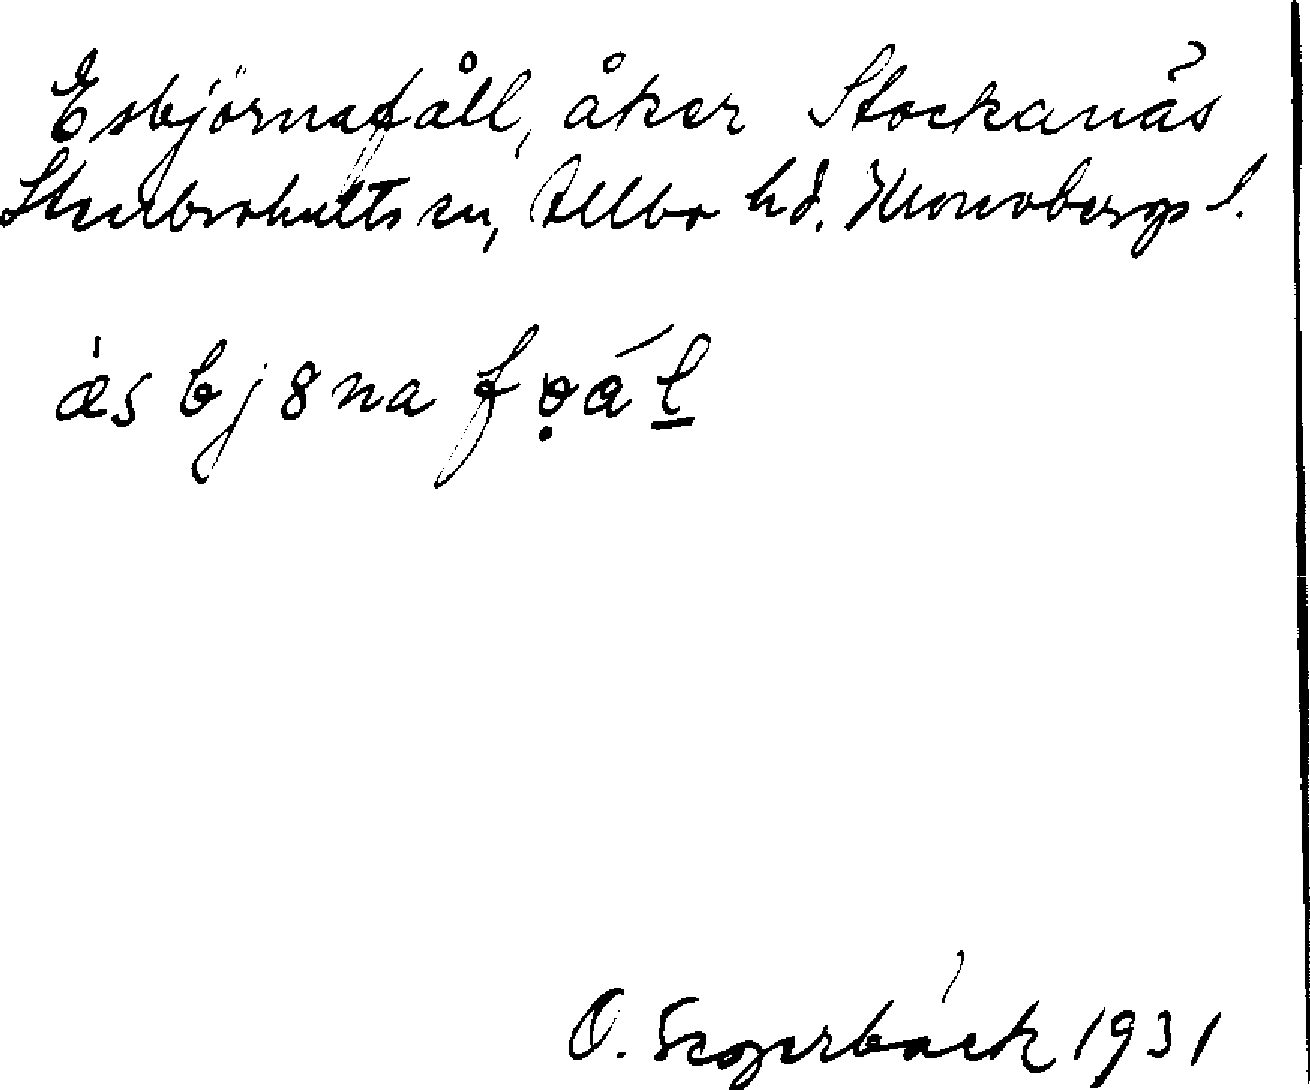 Esbjörnafåll, åker Stockanäs
Stenbrohults sn, Allbo hd. Kronobergs l.
æ̀sbjȣnafo̤ál̲
O. Segerbäck 1931